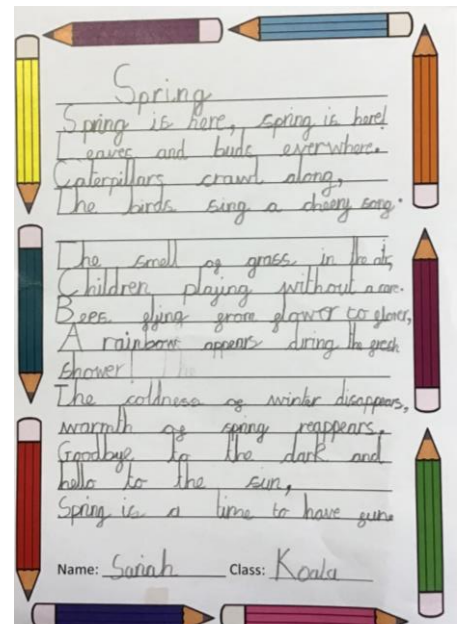 Spring
Spring is here, spring is here!
Leaves and buds everwhere.
Caterpillars crawl along,
The birds sing a cheery song.
The smell of grass in the air,
Children playing without a care.
Bees flying from flower to flower,
A rainbow appears diring the fresh
shower!
The coldness of winter disappears,
warmth of spring reappears,
Goodbye to the dark and
hello to the sun,
Spring is a time to have fun.
Name: Sariah Class: Koala